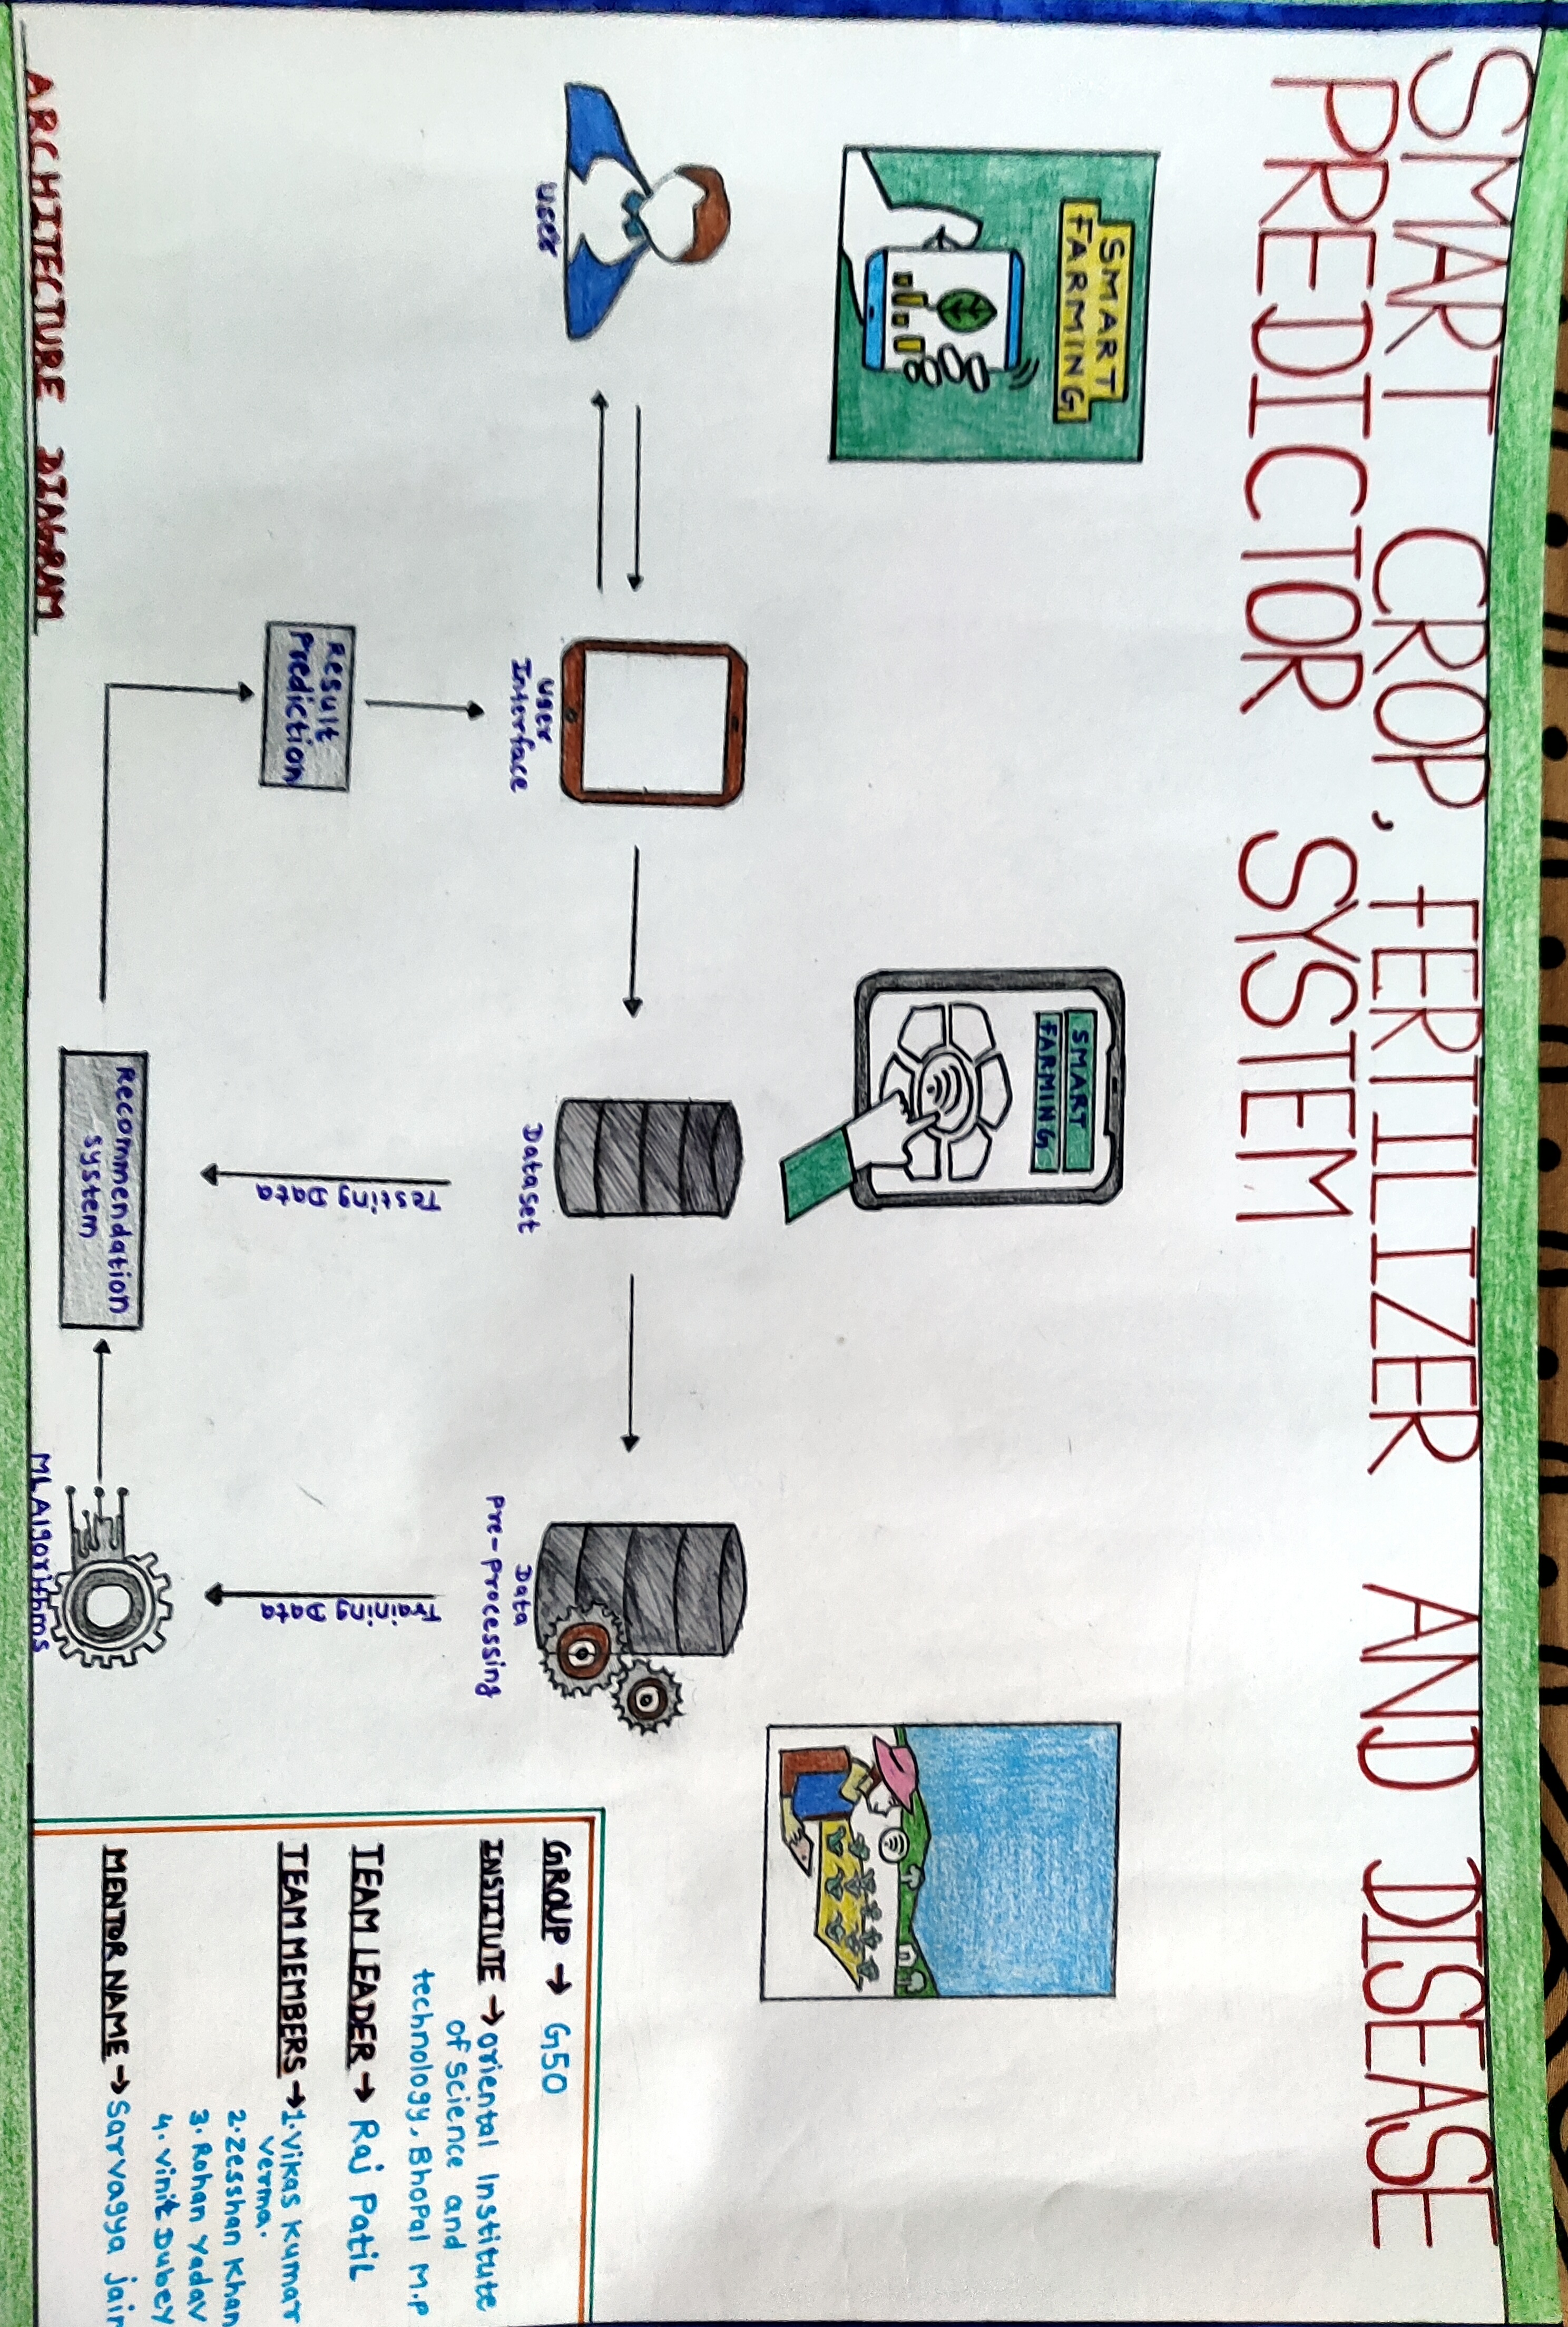 SMART CROP, FERTILIZER AND DISEASE
PREDICTOR SYSTEM
SMART
FARMING
SMART
FARMING
User
User
Interface
Dataset
Data
Pre-processing
Testing Data
Training Data
Result
Prediction
Recommendation
system
ML Algorithms
ARCHITECTURE DIAGRAM
GROUP → G50
INSTITUTE → Oriental Institute
of Science and
technology, Bhopal M.P
TEAM LEADER → Raj Patil
TEAM MEMBERS → 1. Vikas Kumar
Verma.
2. Zesshan Khan
3. Rohan Yadav
4. Vinit Dubey
MENTOR NAME → Sarvagya jain